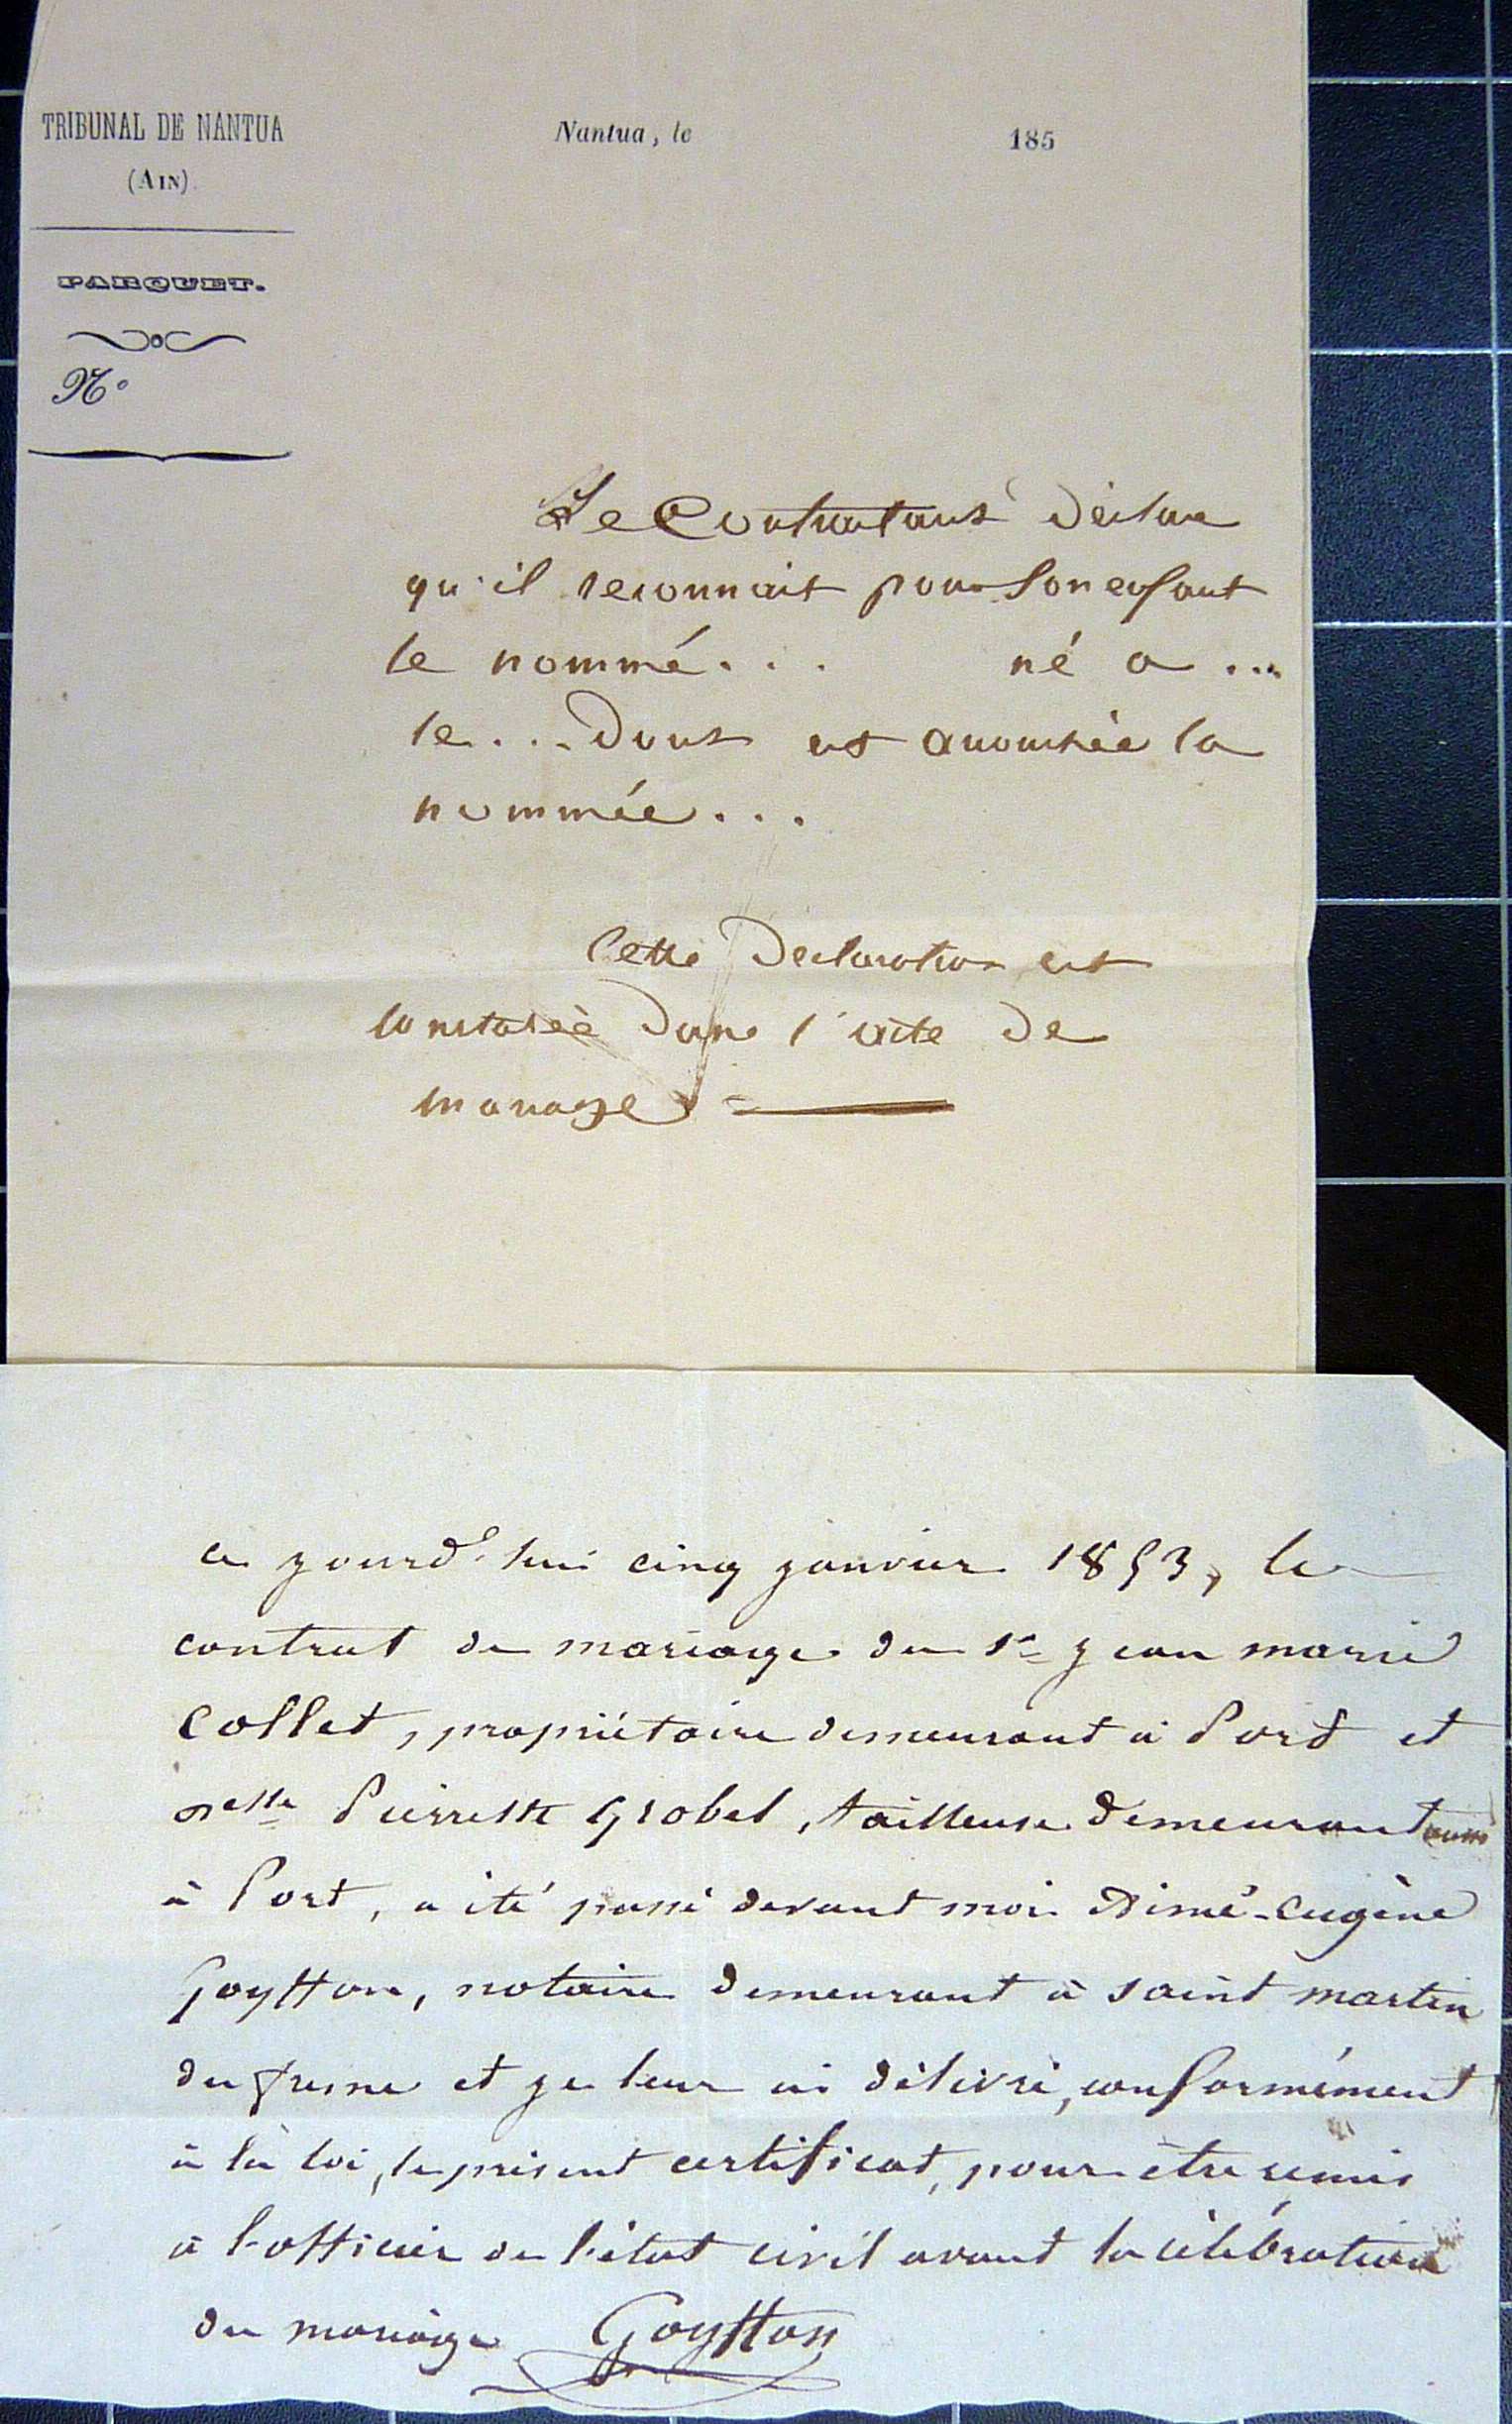 TRIBUNAL DE NANTUA
(AIN).
PARQUET.
N°
Nantua, le 185
Le Contractant déclare
qu'il reconnait pour son enfant
le nommé . . . né a ...
le . . . Dont est accouchée la
nommée . . .
Cette Declaration est
constatée dans l'acte de
mariage
ce jourd'hui cinq janvier 1853, le
contrat de mariage du sr jean marie
Collet, propriétaire demeurant à Port et
melle Pierrette Grobel, tailleuse demeurant aussi
à Port, a été passé devant moi Aimé-Eugène
Goyffon, notaire demeurant à saint martin
du fresne et je leur ai délivré, conformément
à la loi, le présent certificat, pour être remis
à l'officier de l'état civil avant la célébration
du mariage Goyffon